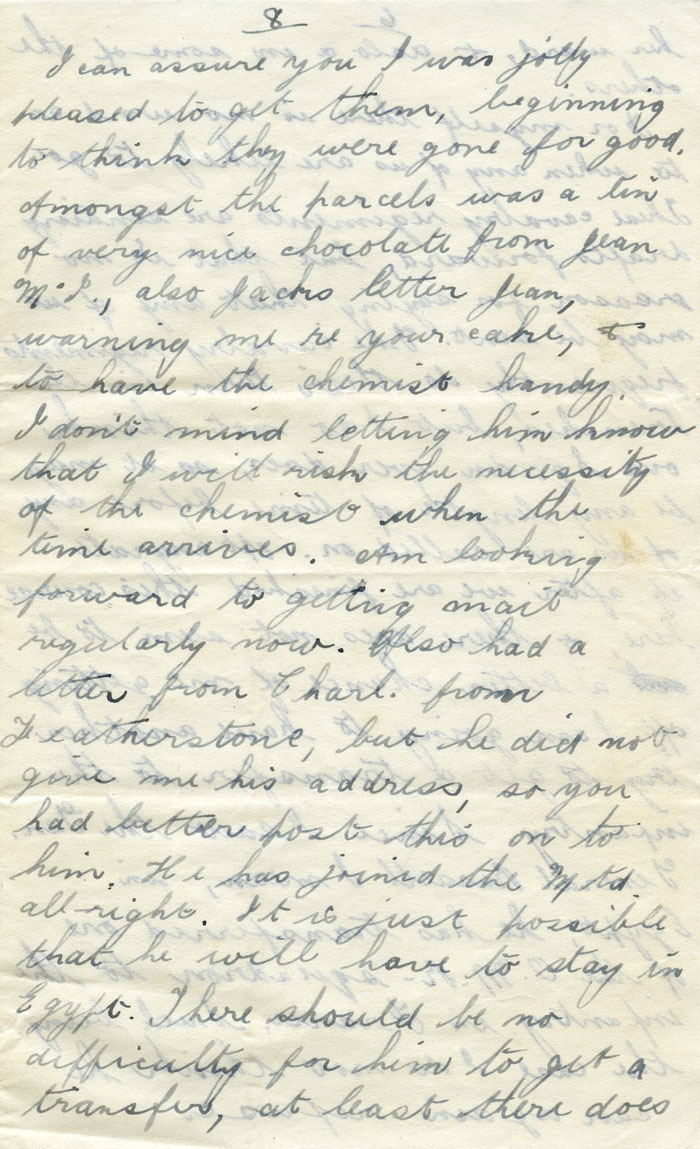 8
I can assure you I was jolly
pleased to get them, beginning
to think they were gone for good.
Amongst the parcels was a tin
of very nice chocolate from Jean
also Jacks letter Jean,
warning me re your cake, &
to have the chemist handy.
I don't mind letting him know
that I will risk the necessity
of the chemist when the
time arrives. Am looking
forward to getting mail
regularly now. Also had a
letter from Charl. from
Featherstone, but he did not
give me his address, so you
had better post this on to
him. He has joined the Mtd.
all-right. It is just possible
that he will have to stay in
Egypt. There should be no
difficulty for him to get a
transfer, at least there does